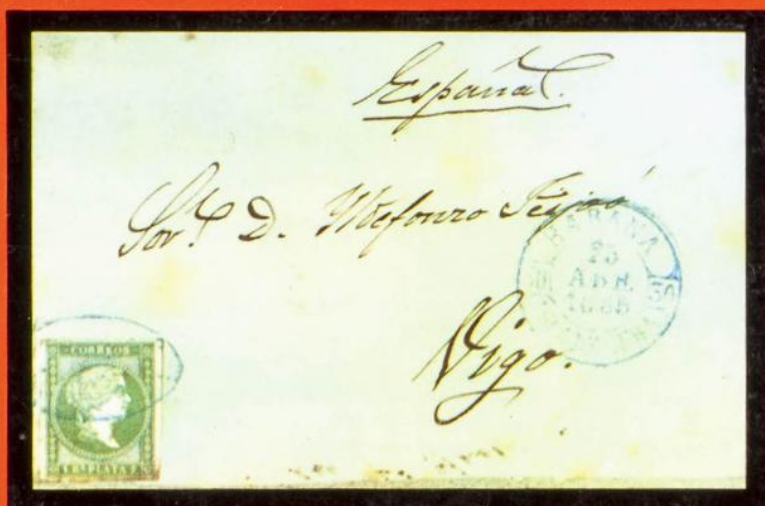 España.
Sor. D. Ildefonzo Feijoó
HABANA
25
ABR.
30
Vigo.
CORREOS
PLATA F.